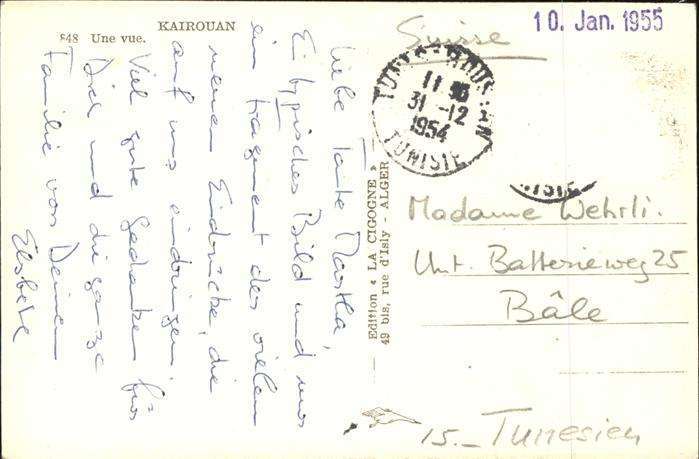 KAIROUAN
848 Une vue.
Liebe Tante Martha,
Ein typisches Bild und nur
ein Fragment der vielen
neuen Eindrücke, die
auf uns eindringen.
Viel gute Gedanken für
Dich und die ganze
Familie von Deinem
Elsbeth
Edition « LA CIGOGNE »
49 bis, rue d'Isly - ALGER
10. Jan. 1955
Suisse
31 -12
1954
TUNISIE
Madame Wehrli.
Unt. Batterieweg 25
Bâle
15.- Tunesien